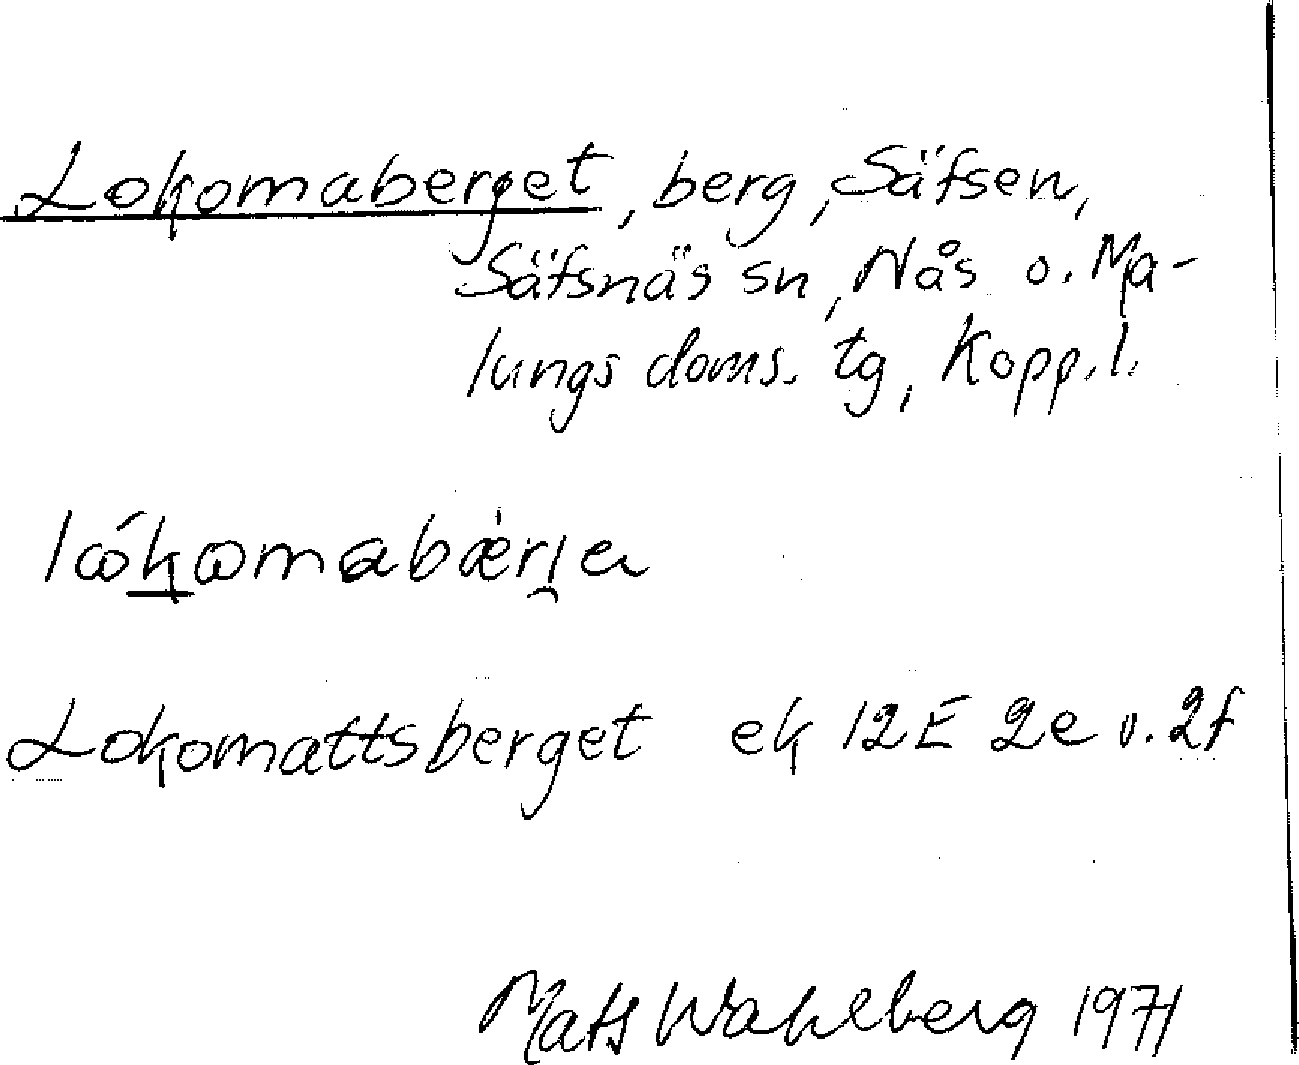 Lokomaberget, berg, Säfsen,
Säfsnäs sn, Nås o. Ma-
lungs doms. tg, Kopp.l.
lɷ́kɷmabæ̀rı̯e
Lokomattsberget ek 12E 2e o. 2f
Mats Wahlberg 1971